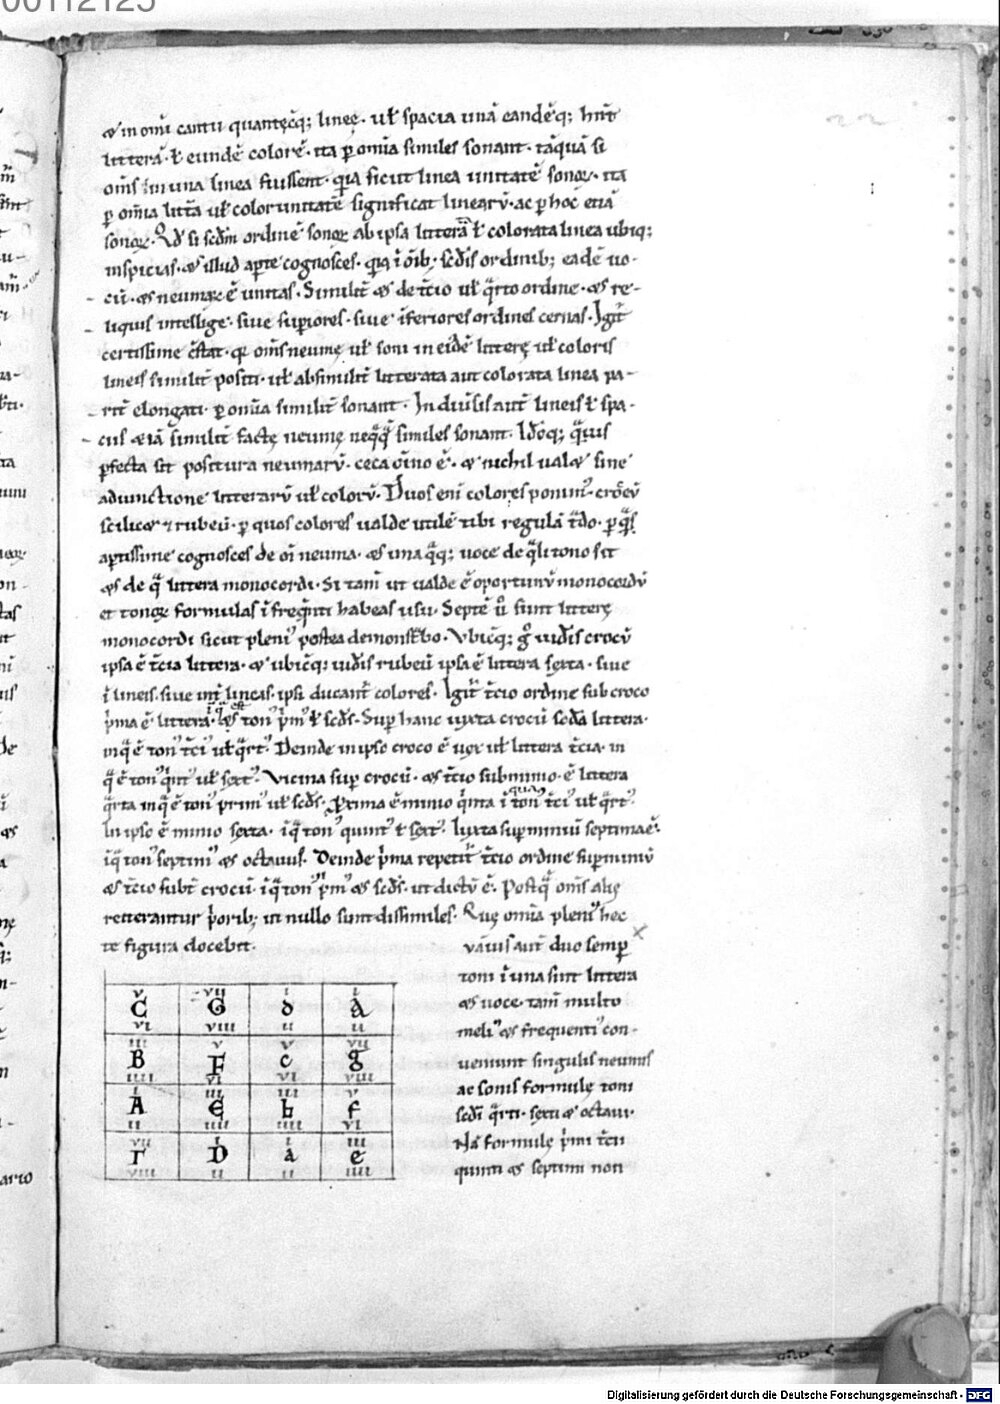 00112125
& in omī cantu quantęcq; lineę · ul̃ spacia unā eandēq; hn̄t
litterā · l̃ eundē colorē · ita ꝑ omīa similes sonant · tāquā si
om̄s in una linea fuissent · qia sicut linea unitatē sonoꝝ · ita
ꝑ om̄ia litt̄a ul̃ color unitatē significat linearū · ac ꝑ hoc etiā
sonoꝝ · Qd̄ si scd̄m ordinē sonoꝝ ab ipsa litterā l̃ colorata linea ubiq;
inspicias · & illud aꝑte cognosces · qia ī ōib; scd̄is ordinib; eadē uo-
cū · & neumaꝝ ē unitas · Similit̄ & de t̄cio ul̃ qͣrto ordine · & re-
liquis intellige · siue suꝑiores · siue īferiores ordines cernas · Igit̄
certissime c̄stat · qꝫ om̄s neumę ul̃ soni in eidē litterę ul̃ coloris
lineis similit̄ positi · ul̃ absimilit̄ litterata aut colorata linea pa-
rit̄ elongati · ꝑ om̄ia similit̄ sonant · In diuīsis aut̄ lineis l̃ spa-
ciis etiā similit̄ factę neumę neqͣqͣ similes sonant · Idōq; qͣuis
ꝑfecta sit positura neumarū · ceca oīno ē · & nichil ual& sine
adiunctione litterarū ul̃ colorū · Duos eni colores ponim⁹ · crocū
scilic& ⁊ rubeū · ꝑ quos colores ualde utilē tibi regulā t̄do · ꝑ qͣs
aꝑtissime cognosces de oī neuma · & unaqͣq; uoce de qͣli tono sit
& de qͣ littera monocordi · Si tam̄ ut ualde ē oportunū monocordū
et tonoꝝ formulas ī freqͥnti habeas usu · Septē ū sunt litterę
monocordi sicut pleni⁹ postea demonst̄bo · Vbicq; gͦ uid̄is crocū
ipsa ē t̄cia littera · & ubicq; uid̄is rubeū ipsa ē littera sexta · siue
ī lineis · siue int̄ lineas · ipsi ducant̄ colores · Igit̄ t̄cio ordine sub croco
pͥma ē littera · ton⁹ pͥm⁹ l̃ scd̄s · Suꝑ hanc iuxta crocū sc̄da littera ·
inqͣ ē ton⁹ t̄ci⁹ ul̃ qͣrt⁹ · Deinde in ipso croco ē uox ul̃ littera t̄cia · in
qͣ ē ton⁹ qͥnt⁹ ul̃ sext⁹ · Vicina suꝑ crocū · & t̄cio sub minio · ē littera
qͣrta inqͣ ē ton⁹ prim⁹ ul̃ scd̄s · Proxima ē minio qͥnta ī qua ton⁹ t̄ci⁹ ul̃ qͣrt⁹ ·
In ipso ē minio sexta · īqͣ ton⁹ quint⁹ l̃ sext⁹ · Iuxta suꝑ miniū septima ē ·
īqͣ ton⁹ septim⁹ & octauus · Deinde pͥma repetit̄ t̄cio ordine suꝑ miniū
& t̄cio subt̄ crocū · īqͣ ton⁹ pͥm⁹ & scd̄s · ut dictū ē · Postqͣ om̄s alię
reiterantur pͥorib; in nullo sunt dissimiles · Quę omīa pleni⁹ hec
te figura docebit ·
vāuis aut̄ duo semꝑ
toni ī una sint littera
& uoce · tam̄ multo
meli⁹ & frequenti⁹ con-
ueniunt singulis neumis
ac sonis formulę toni
scd̄i qͣrti · sexti & octaui ·
Nā formulę pͥmi t̄cii
quinti & septimi non
v vii i i
C G d A
vi viii ii ii
iii v v vii
B F c g
iiii vi vi viii
i iii iii v
A E b f
ii iiii iiii vi
vii i i iii
Γ D a e
viii ii ii iiii
Digitalisierung gefördert durch die Deutsche Forschungsgemeinschaft - DFG